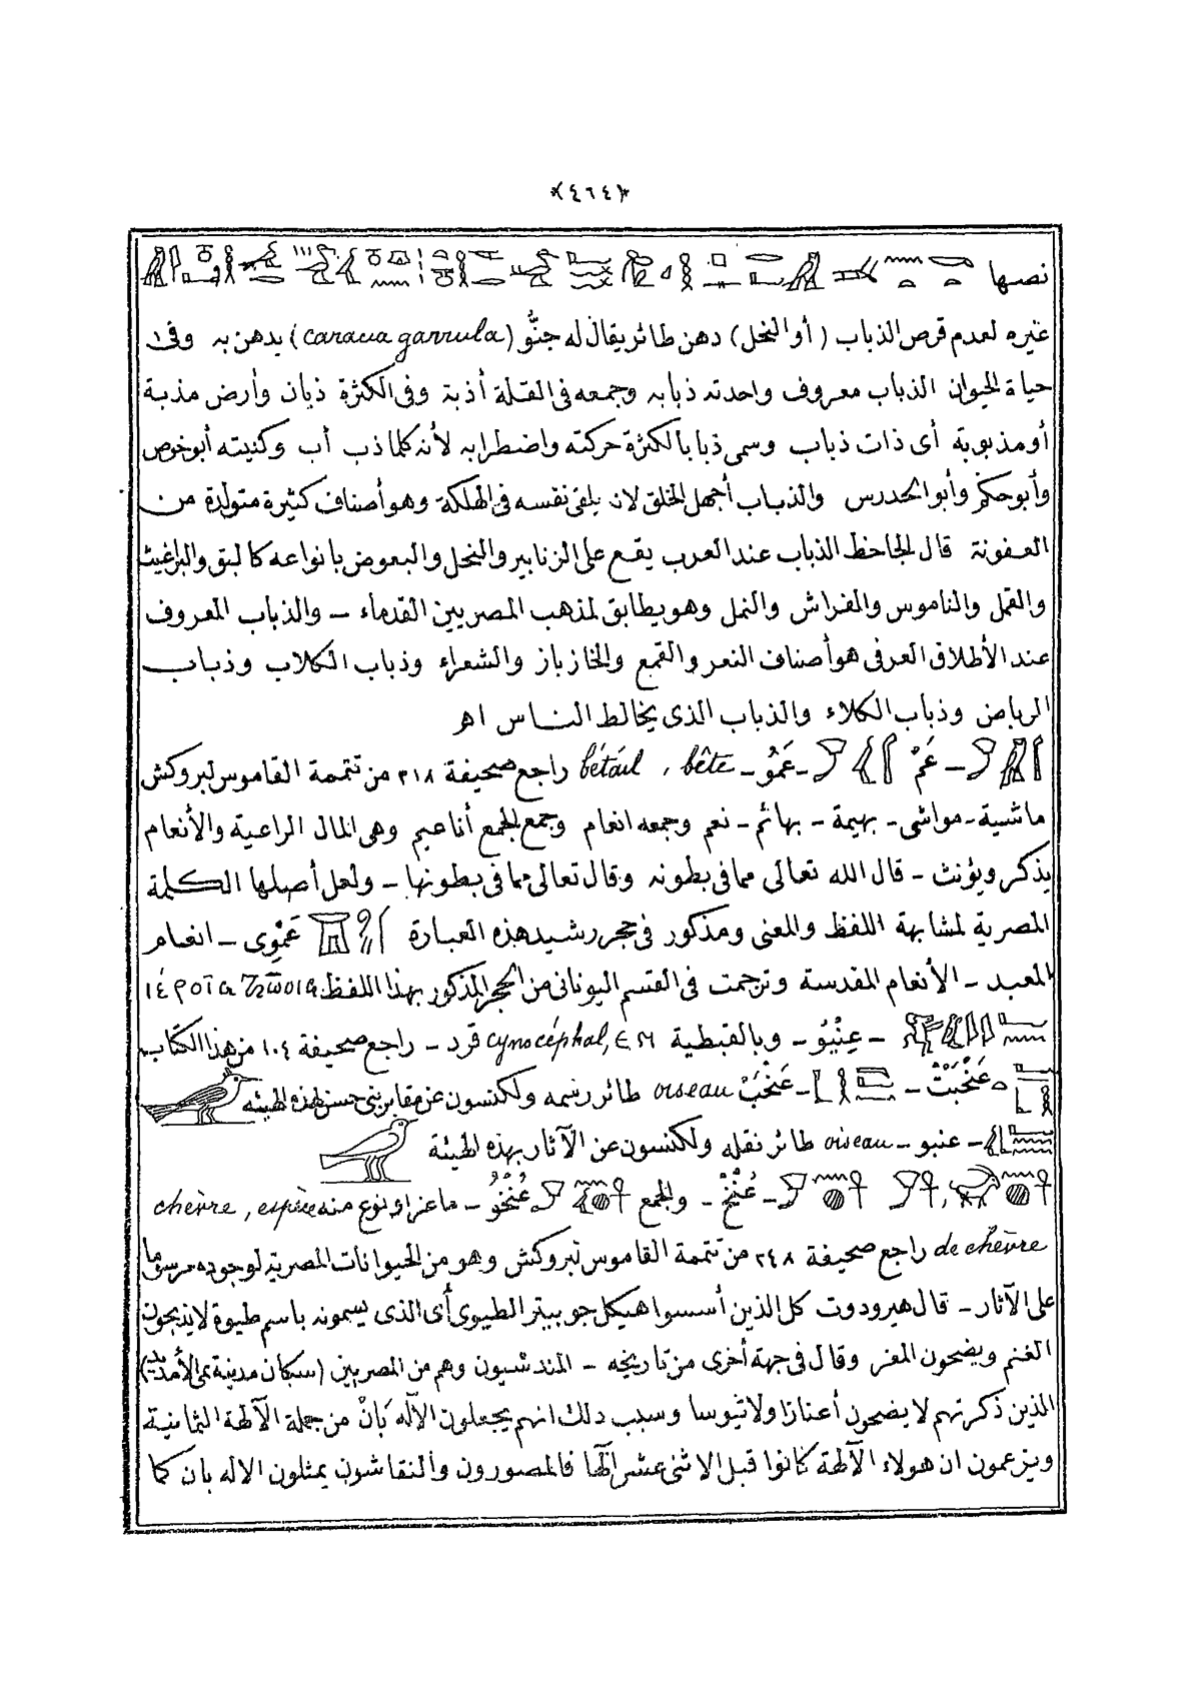 ﴿٤٦٤﴾
نصها
غيره لعدم قرص الذباب (أو النحل) دهن طائر يقال له جنُّو (caraua garrula) يدهن به وفى
حياة الحيوان الذباب معروف واحدته ذبابه وجمعه فى القلة أذبة وفى الكثرة ذبان وأرض مذبة
أو مذبوبة أى ذات ذباب وسمى ذبابا لكثرة حركته واضطرابه لأنه كلما ذب آب وكنيته أبو خوص
وأبو حكم وأبو الحدرس والذباب أجهل الخلق لانه يلقى نفسه فى الهلكة وهو أصناف كثيرة متولدة من
العفونة قال الجاحظ الذباب عند العرب يقع على الزنابير والنحل والبعوض بانواعه كالبق والبراغيث
والقمل والناموس والفراش والنمل وهو يطابق لمذهب المصريين القدماء – والذباب المعروف
عند الأطلاق العرفى هو أصناف النعر والقمع والخازباز والشعراء وذباب الكلاب وذباب
الرياض وذباب الكلاء والذباب الذى يخالط الناس اهـ
– عَمْ – عَمُو – bétail , bête راجع صحيفة ٣١٨ من تتمة القاموس لبروكش
ماشية – مواشى – بهيمة – بهائم – نعم وجمعه انعام وجمع الجمع أناعيم وهى المال الراعية والأنعام
يذكر ويؤنث – قال الله تعالى مما فى بطونه وقال تعالى مما فى بطونها – ولعل أصلها الكلمة
المصرية لمشابهة اللفظ والمعنى ومذكور فى حجر رشيد هذه العبارة عَمْوِى – انعام
المعبد – الأنعام المقدسة وترجمت فى القسم اليونانى من الحجر المذكور بهذا اللفظ
– عِنْيُو – وبالقبطية cynocéphal, ⲉⲛ قرد – راجع صحيفة ١٠٤ من هذا الكتاب
عَنْخَبَتْ – – عَنْخَبْ oiseau طائر رسمه ولكنسون عن مقابر بنى حسن بهذه الهيئه
– عنبو – oiseau طائر نقله ولكنسون عن الآثار بهذه الهيئة
– عُنْخْ – والجمع عُنْخُو – ماعز او نوع منه chèvre, espèce
de chèvre راجع صحيفة ٢٤٨ من تتمة القاموس لبروكش وهو من الحيوانات المصرية لوجوده مرسوما
على الآثار – قال هيرودوت كل الذين أسسوا هيكل جوبيتر الطيوى أى الذى يسمونه باسم طيوة لا يذبحون
الغنم ويضحون المعز وقال فى جهة أخرى من تاريخه – المندشيون وهم من المصريين (سكان مدينة تمى الأمديد)
الذين ذكرتهم لا يضحون أعنازا ولا تيوسا وسبب ذلك انهم يجعلون الآله بَانْ من جملة الآلهة الثمانية
ويزعمون ان هولاء الآلهة كانوا قبل الاثنى عشر الها فالمصورون والنقاشون يمثلون الاله بان كما